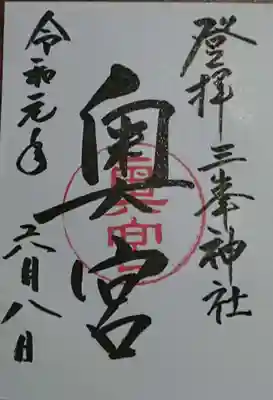 登拝三峯神社
奥宮
奥宮
令和元年六月八日